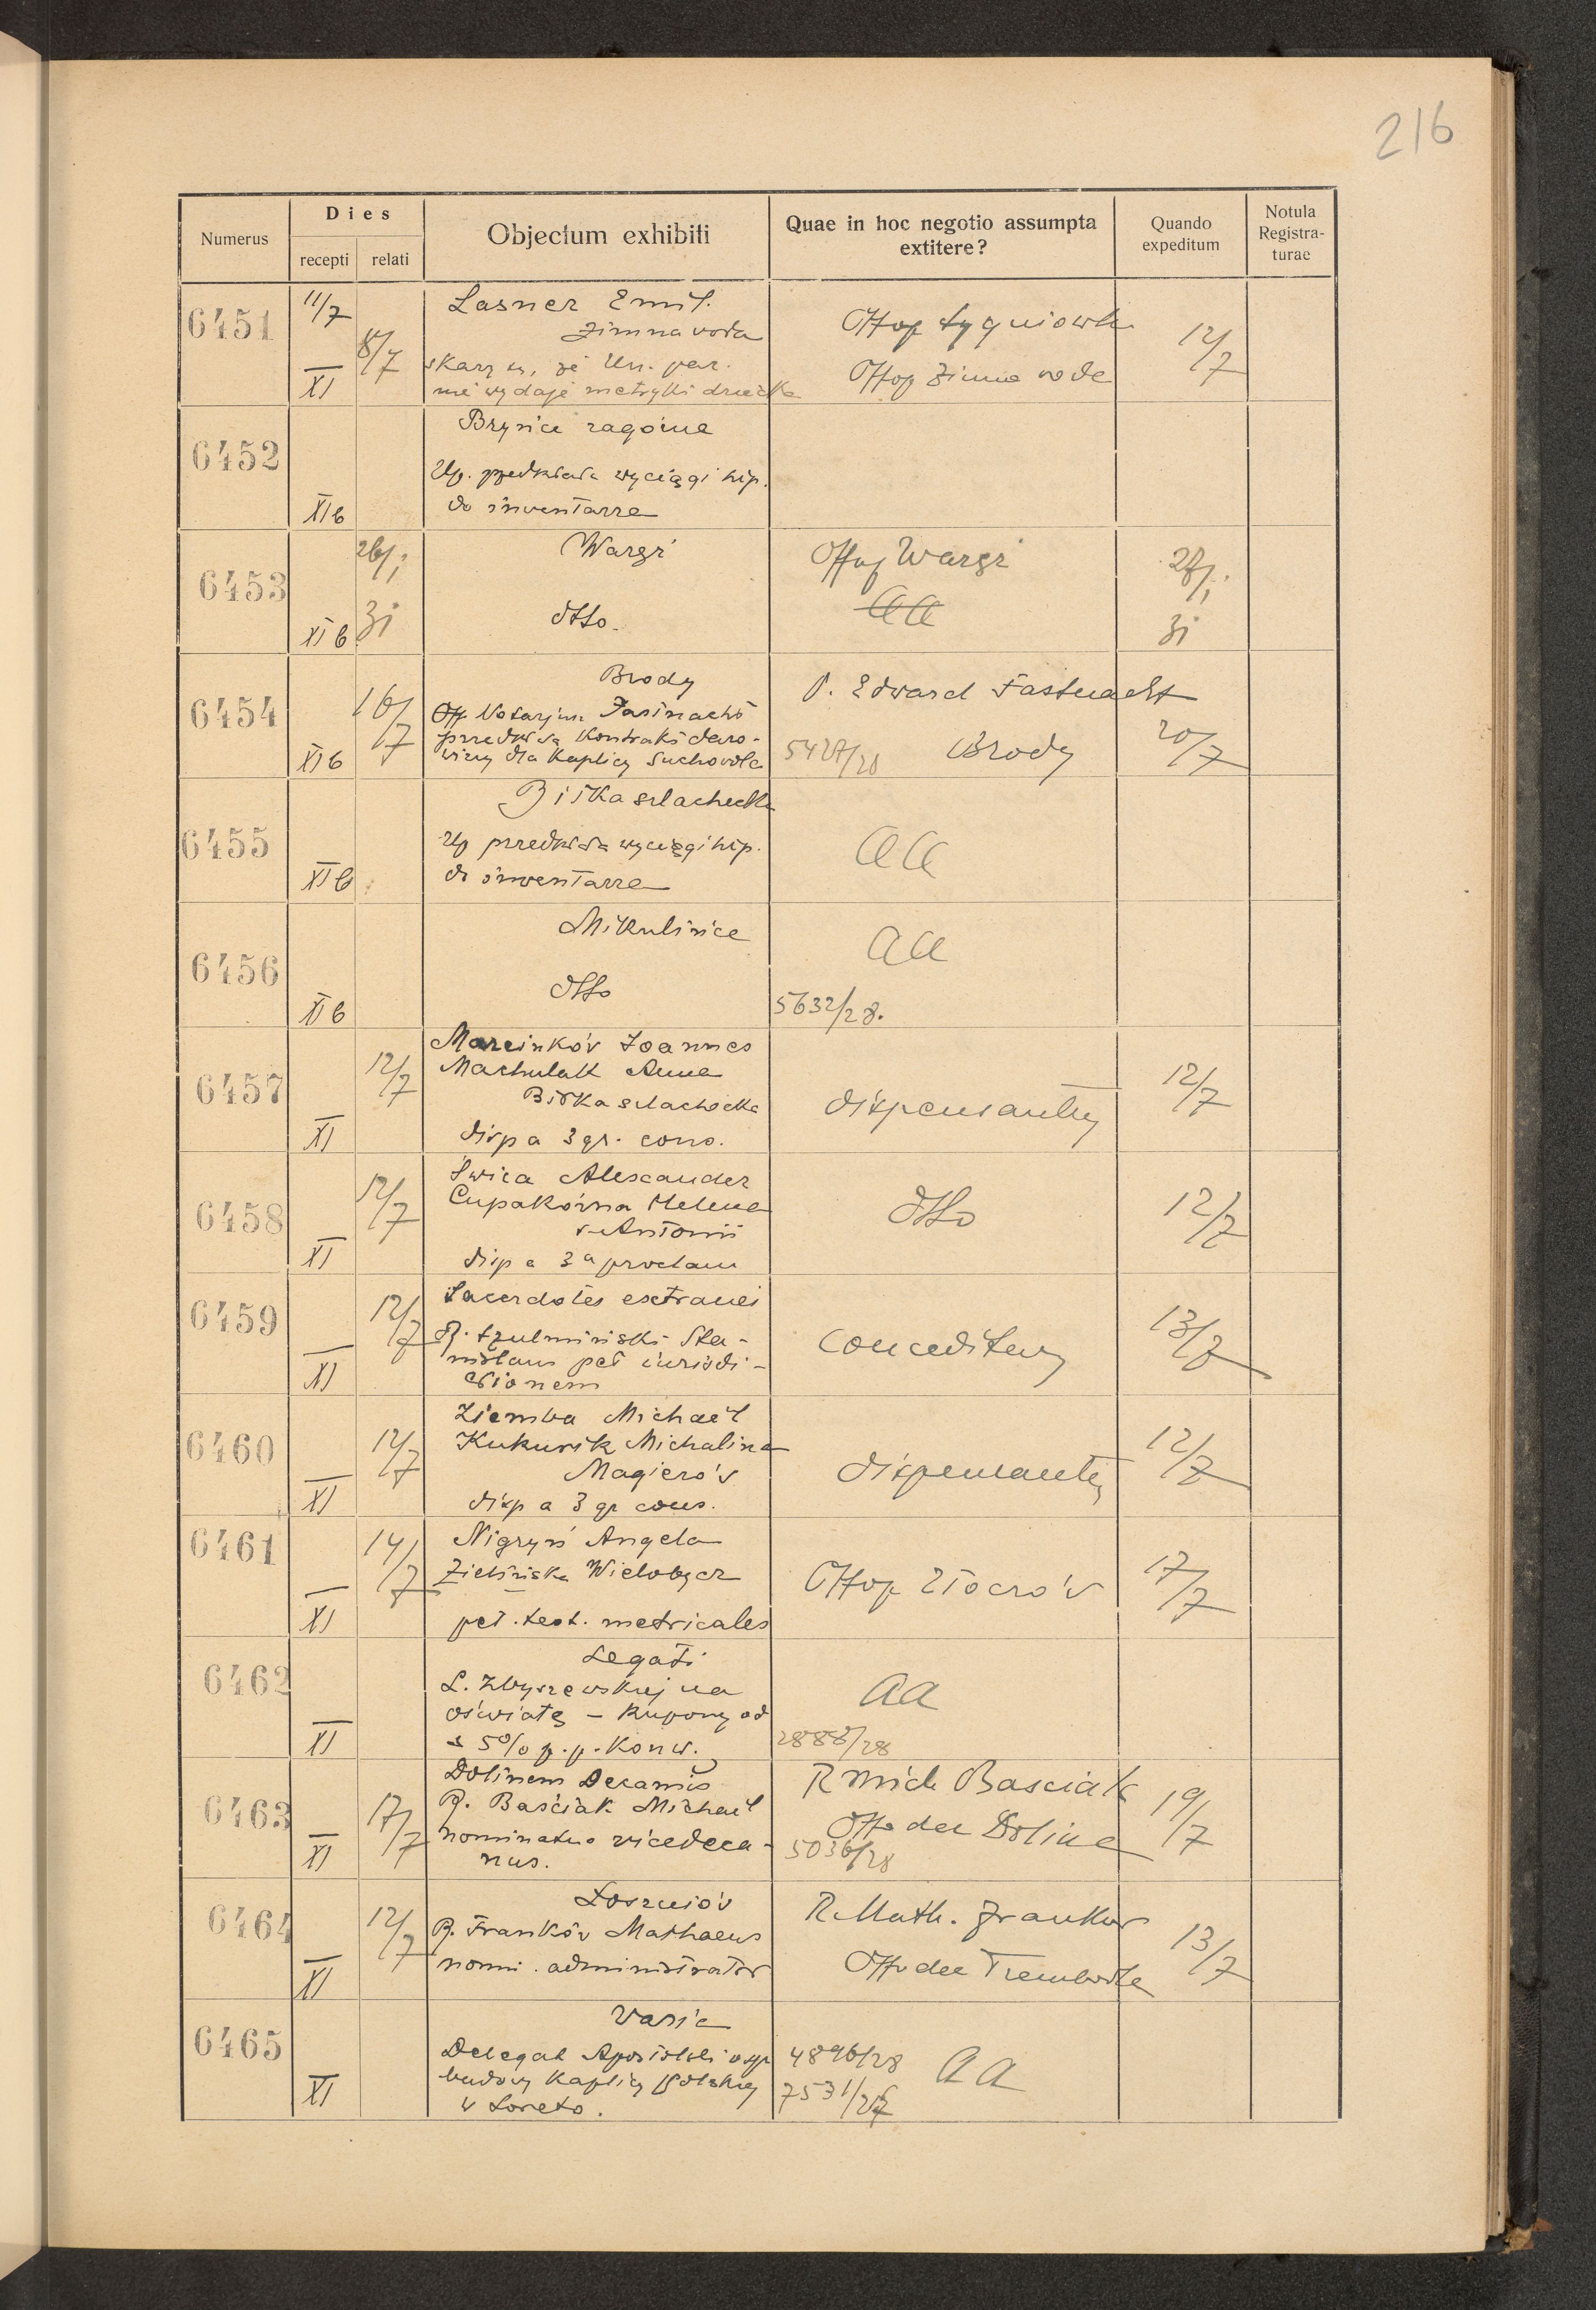 216
Numerus
Dies
recepti relati
Objectum exhibiti
Quae in hoc negotio assumpta
extitere?
Quando
expeditum
Notula
Registra-
turae
6451
11/7
XI
8/7
Lasner Emil.
Zimnavoda
że Urz. par.
nie wydaje metryki
Offop
Offop Zimna wode
12/7
6452
XI b
Up. wyciągi hip.
do inwentarza
6453
XI b
31
Wargi
dtto.
Offop Wargi
aa
31
6454
XI b
16/7
Brody
Off Notarjusz Fasnacht
przedkłada kontrakt daro-
wizny dla Kaplicy Suchowola
P. Edward Fastnacht
5427/28 Brody
20/7
6455
XI b
Biłka szlachecka
Up przedkłada wyciągi hip.
do inwentarza
aa
6456
XI b
Mikulińce
dtto
aa
5632/28.
6457
XI
12/7
Marcinków Joannes
Machulak Anna
Biłka szlachecka
disp a 3 gr. cons.
dispensantur
12/7
6458
XI
12/7
Alexander
Cupakówna Helena
s. Antonii
disp a 3ª proclam
dtto
12/7
6459
XI
12/7
Sacerdotes extranei
R. Sta-
nislaus pet iurisdi-
ctionem
conceditur
13/7
6460
XI
12/7
Ziemba Michaël
Kukurik Michalina
Magierów
disp a 3 gr cons.
dispensantur
12/7
6461
XI
14/7
Nigryń Angela
Zielińska
pet. test. metricales
Offop Złoczów
17/7
6462
XI
Legati
L. Zbyszewskiej na
oświatę – Kupony od
5% p.p. Konw.
aa
2888/28
6463
XI
17/7
Dolinen Decanus
R. Baściak Michaël
nominatus vicedeca-
nus.
R Mich Basciak
Offo dec Dolina
5036/28
19/7
6464
XI
12/7
Łoszniów
R. Franków Mathaeus
nomi. administrator
R. Math. Franków
Offo dec Trembowla
13/7
6465
XI
Varia
Delegat Apostolski
budowy Kaplicy Polskiej
w Loreto.
4896/28 aa
7531/27